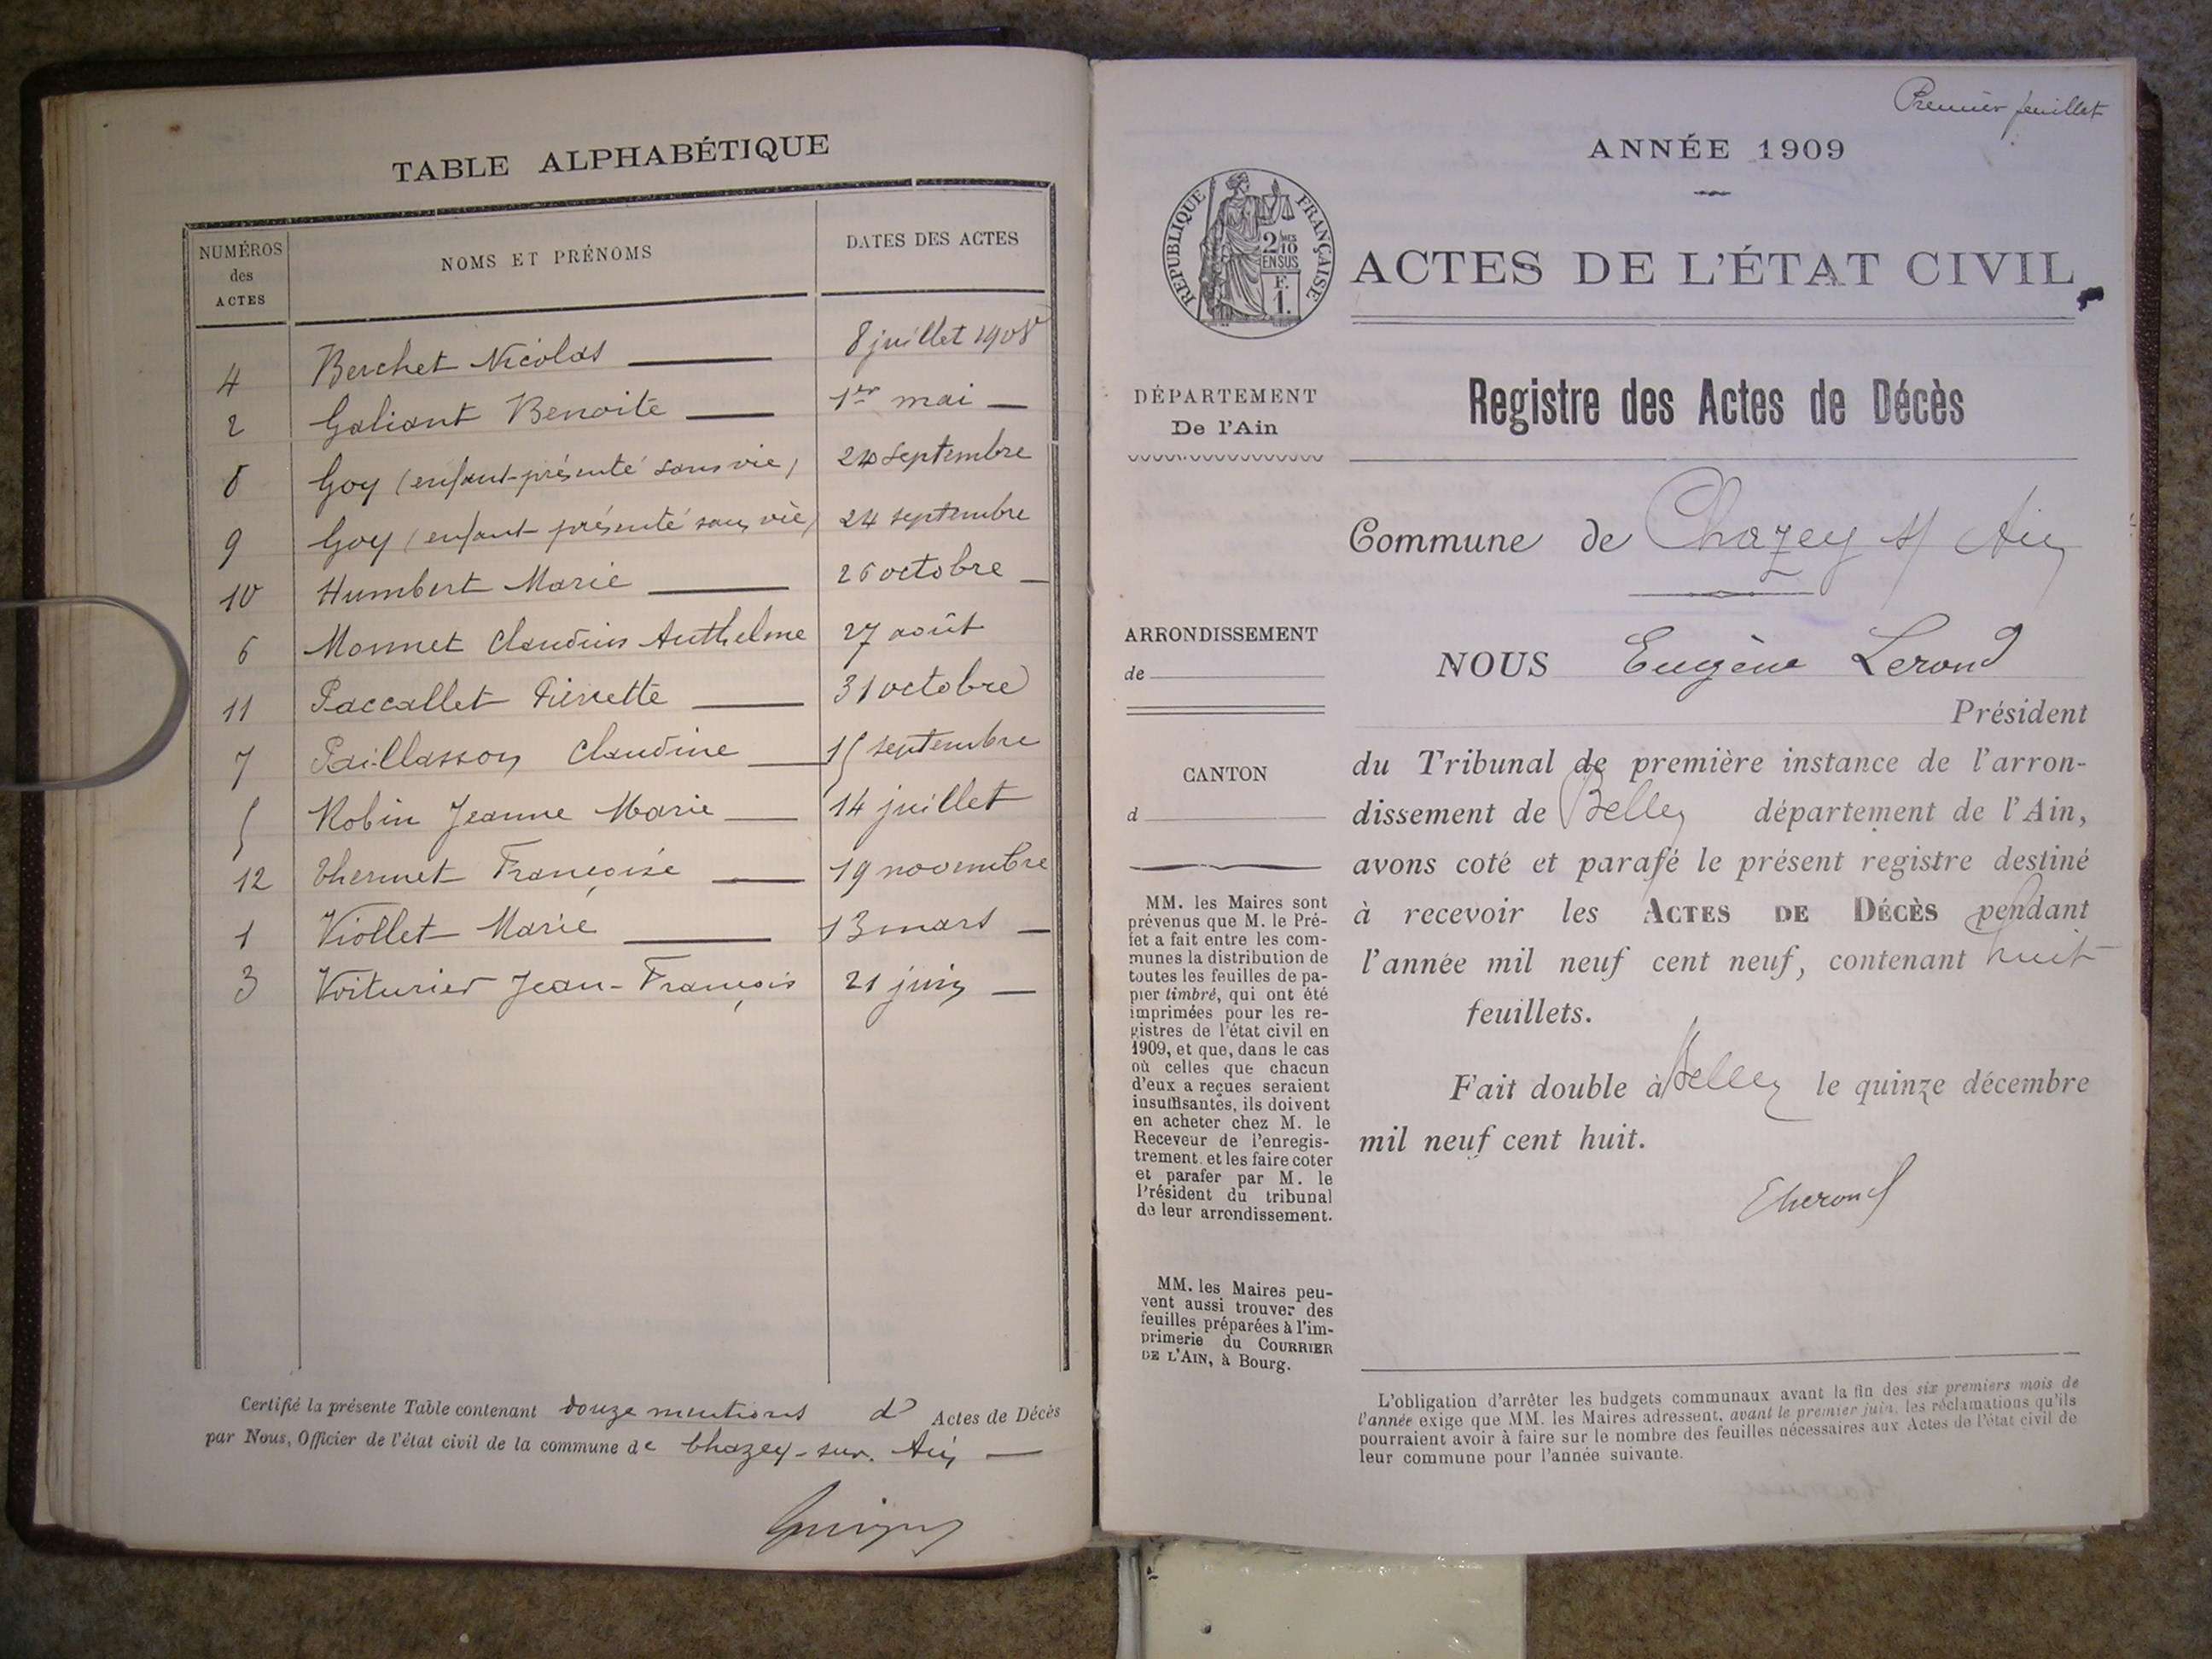 TABLE ALPHABÉTIQUE
NUMÉROS des ACTES NOMS ET PRÉNOMS DATES DES ACTES
4 Berchet Nicolas 8 juillet 1908
2 Galiant Benoite 1er mai
8 Goy (enfant présenté sans vie) 24 septembre
9 Goy (enfant présenté sans vie) 24 septembre
10 Humbert Marie 26 octobre
6 Monnet Claudius Anthelme 27 août
11 Paccallet Pierrette 31 octobre
7 Paillasson Claudine 15 septembre
5 Robin Jeanne Marie 14 juillet
12 Thermet Françoise 19 novembre
1 Viollet Marie 13 mars
3 Voiturier Jean-François 21 juin
Certifié la présente Table contenant douze mentions d' Actes de Décès
par Nous, Officier de l'état civil de la commune de Chazey-sur-Ain
Premier feuillet
ANNÉE 1909
RÉPUBLIQUE FRANÇAISE
2/10 MES
EN SUS
F.
1.
ACTES DE L'ÉTAT CIVIL
DÉPARTEMENT
De l'Ain
Registre des Actes de Décès
Commune de Chazey s/ Ain
ARRONDISSEMENT
de
NOUS Eugène Lerond
Président
CANTON
d
du Tribunal de première instance de l'arron-
dissement de Belley département de l'Ain,
avons coté et parafé le présent registre destiné
à recevoir les ACTES DE DÉCÈS pendant
l'année mil neuf cent neuf, contenant huit
feuillets.
Fait double à Belley le quinze décembre
mil neuf cent huit.
ELerond
MM. les Maires sont
prévenus que M. le Pré-
fet a fait entre les com-
munes la distribution de
toutes les feuilles de pa-
pier timbré, qui ont été
imprimées pour les re-
gistres de l'état civil en
1909, et que, dans le cas
où celles que chacun
d'eux a reçues seraient
insuffisantes, ils doivent
en acheter chez M. le
Receveur de l'enregis-
trement, et les faire coter
et parafer par M. le
Président du tribunal
de leur arrondissement.
MM. les Maires peu-
vent aussi trouver des
feuilles préparées à l'im-
primerie du COURRIER
DE L'AIN, à Bourg.
L'obligation d'arrêter les budgets communaux avant la fin des six premiers mois de
l'année exige que MM. les Maires adressent, avant le premier juin, les réclamations qu'ils
pourraient avoir à faire sur le nombre des feuilles nécessaires aux Actes de l'état civil de
leur commune pour l'année suivante.